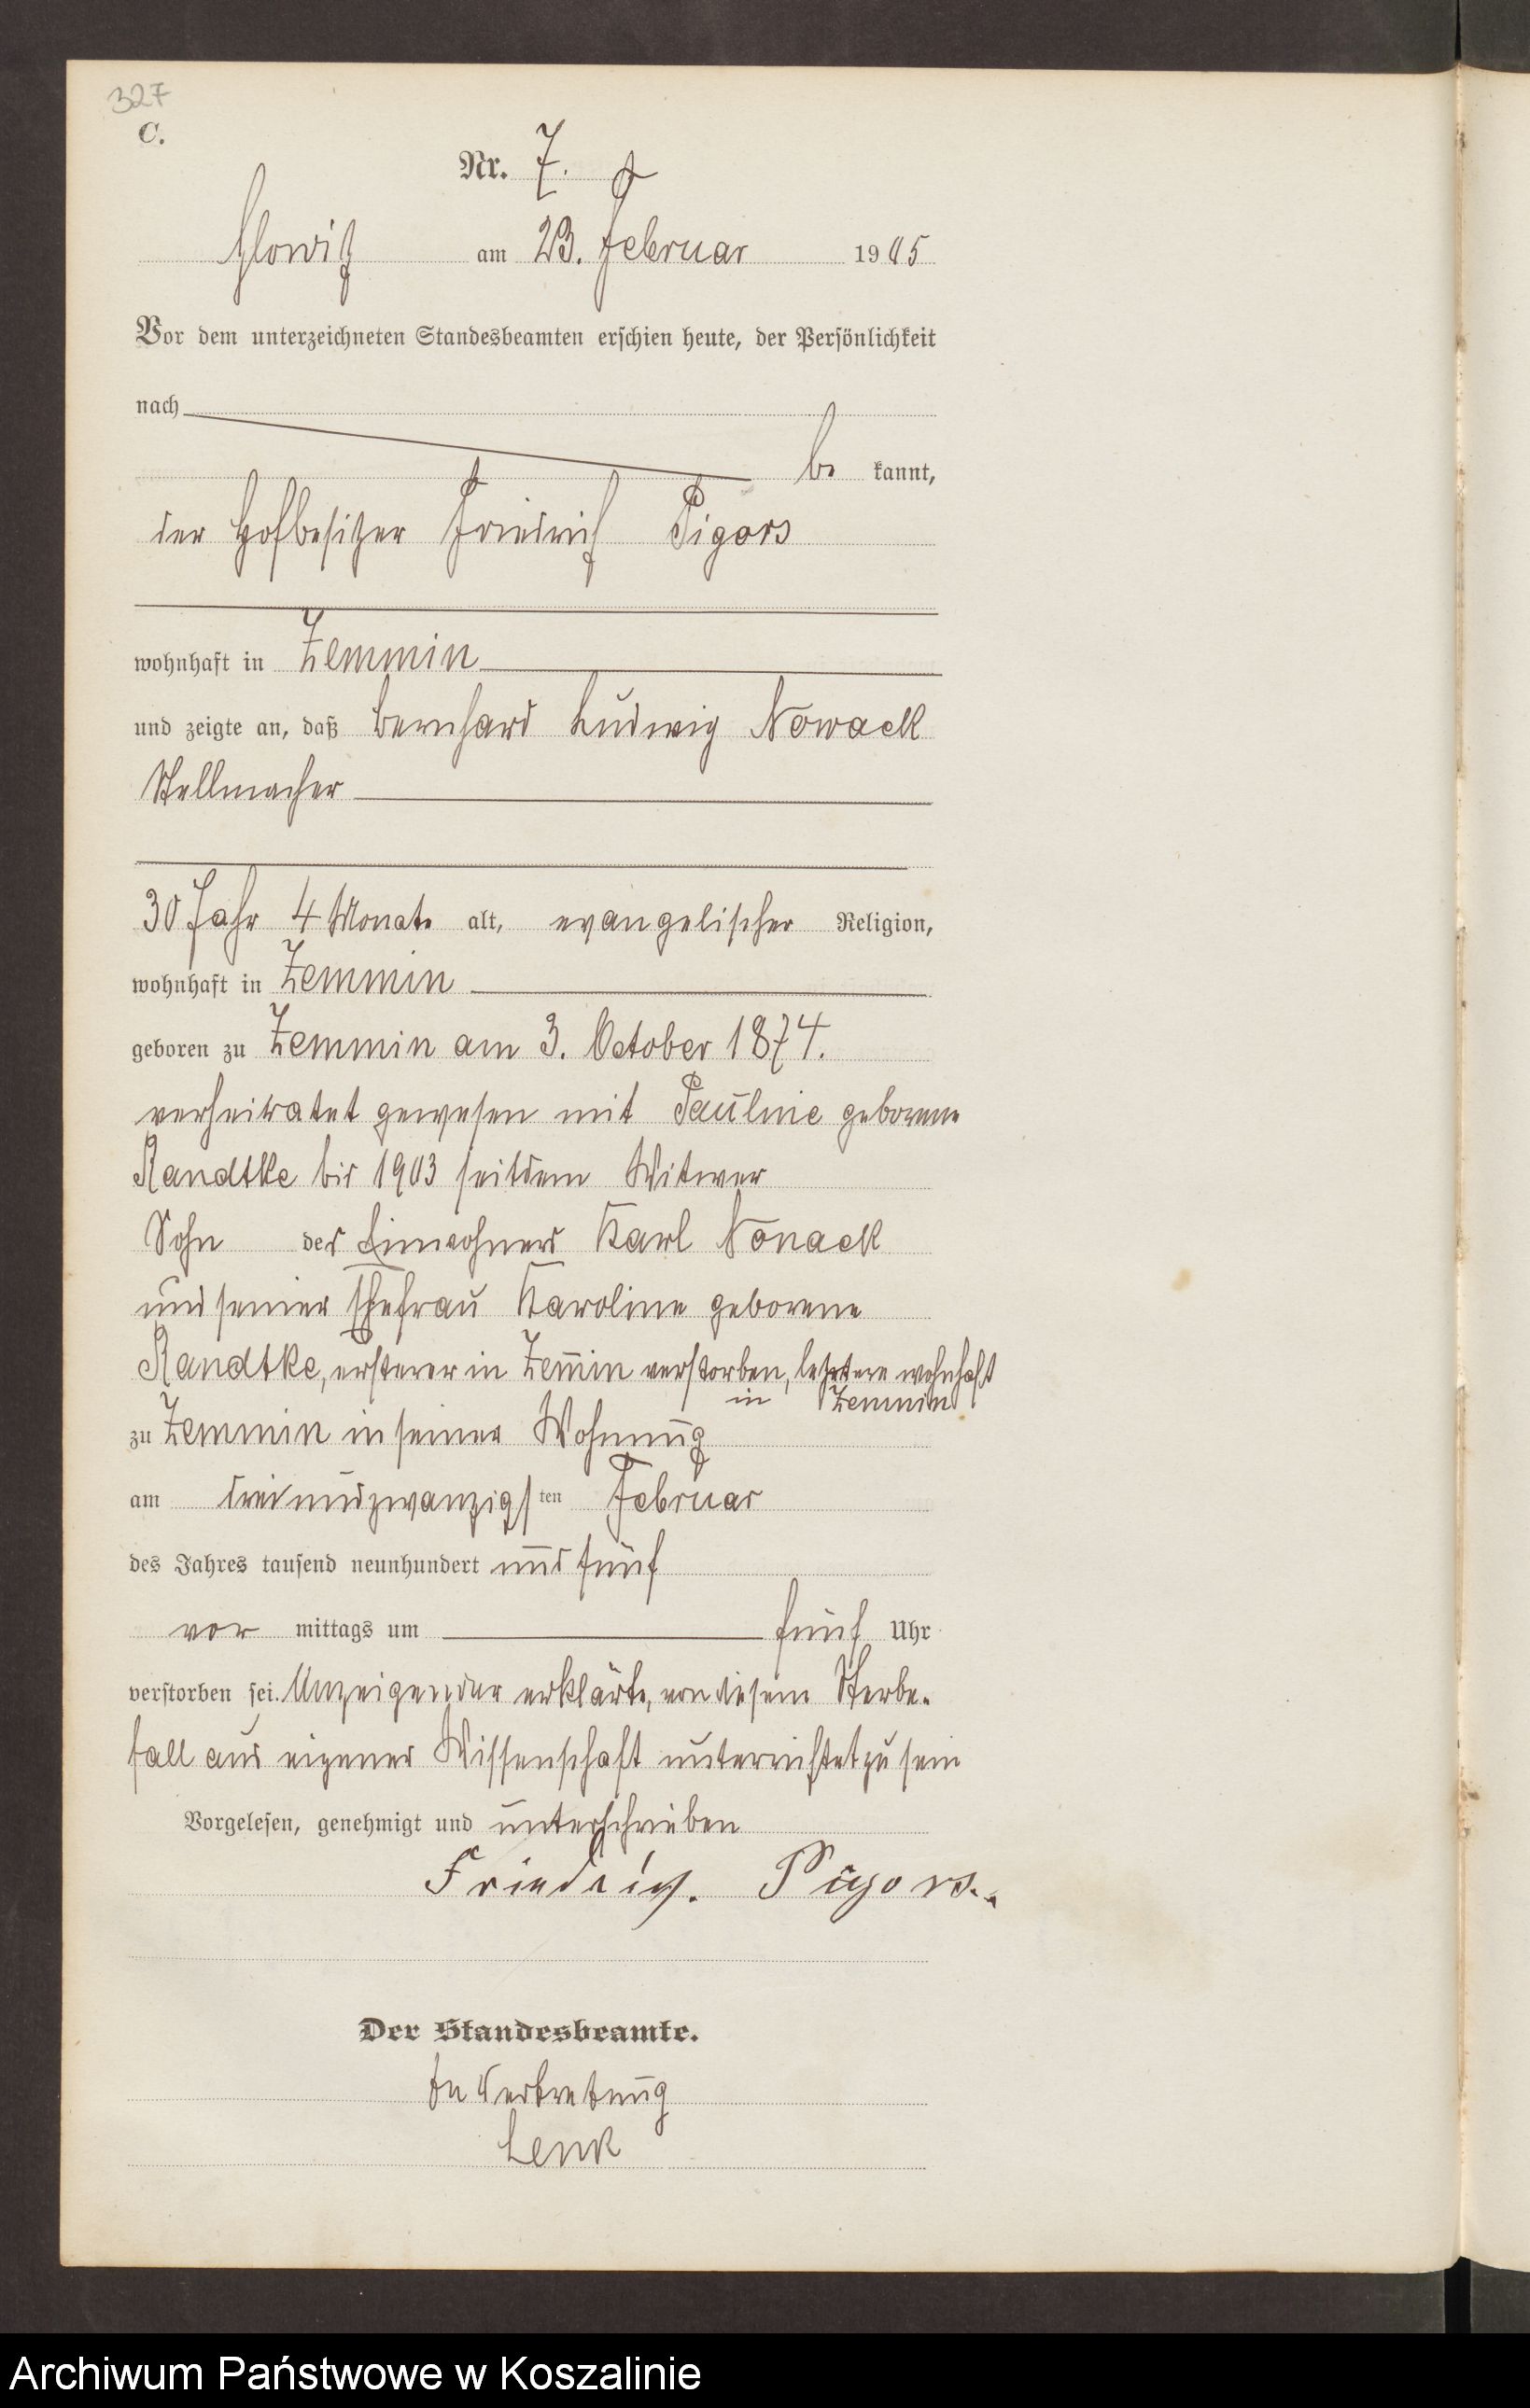 327
C.
Nr. 7.
Glowitz am 23. Februar 1905
Vor dem unterzeichneten Standesbeamten erschien heute, der Persönlichkeit
nach
be kannt,
der Hofbesitzer Friedrich Pigors
wohnhaft in Zemmin
und zeigte an, daß Bernhard Ludwig Nowack
Stellmacher
30 Jahr 4 Monate alt, evangelischer Religion,
wohnhaft in Zemmin
geboren zu Zemmin am 3. October 1874.
verheiratet gewesen mit Pauline geborene
Randtke bis 1903 seitdem Witwer
Sohn des Einwohners Karl Nowack
und seiner Ehefrau Karoline geborene
Randtke, ersterer in Zem̄in verstorben, letztere wohnhaft
in Zemmin
zu Zemmin in seiner Wohnung
am dreiundzwanzigsten Februar
des Jahres tausend neunhundert und fünf
vor mittags um fünf Uhr
verstorben sei. Anzeigender erklärte, von diesem Sterbe-
fall aus eigener Wissenschaft unterrichtet zu sein
Vorgelesen, genehmigt und unterschrieben
Friedrich. Pigors.
Der Standesbeamte.
In Vertretung
Lenk
Archiwum Państwowe w Koszalinie